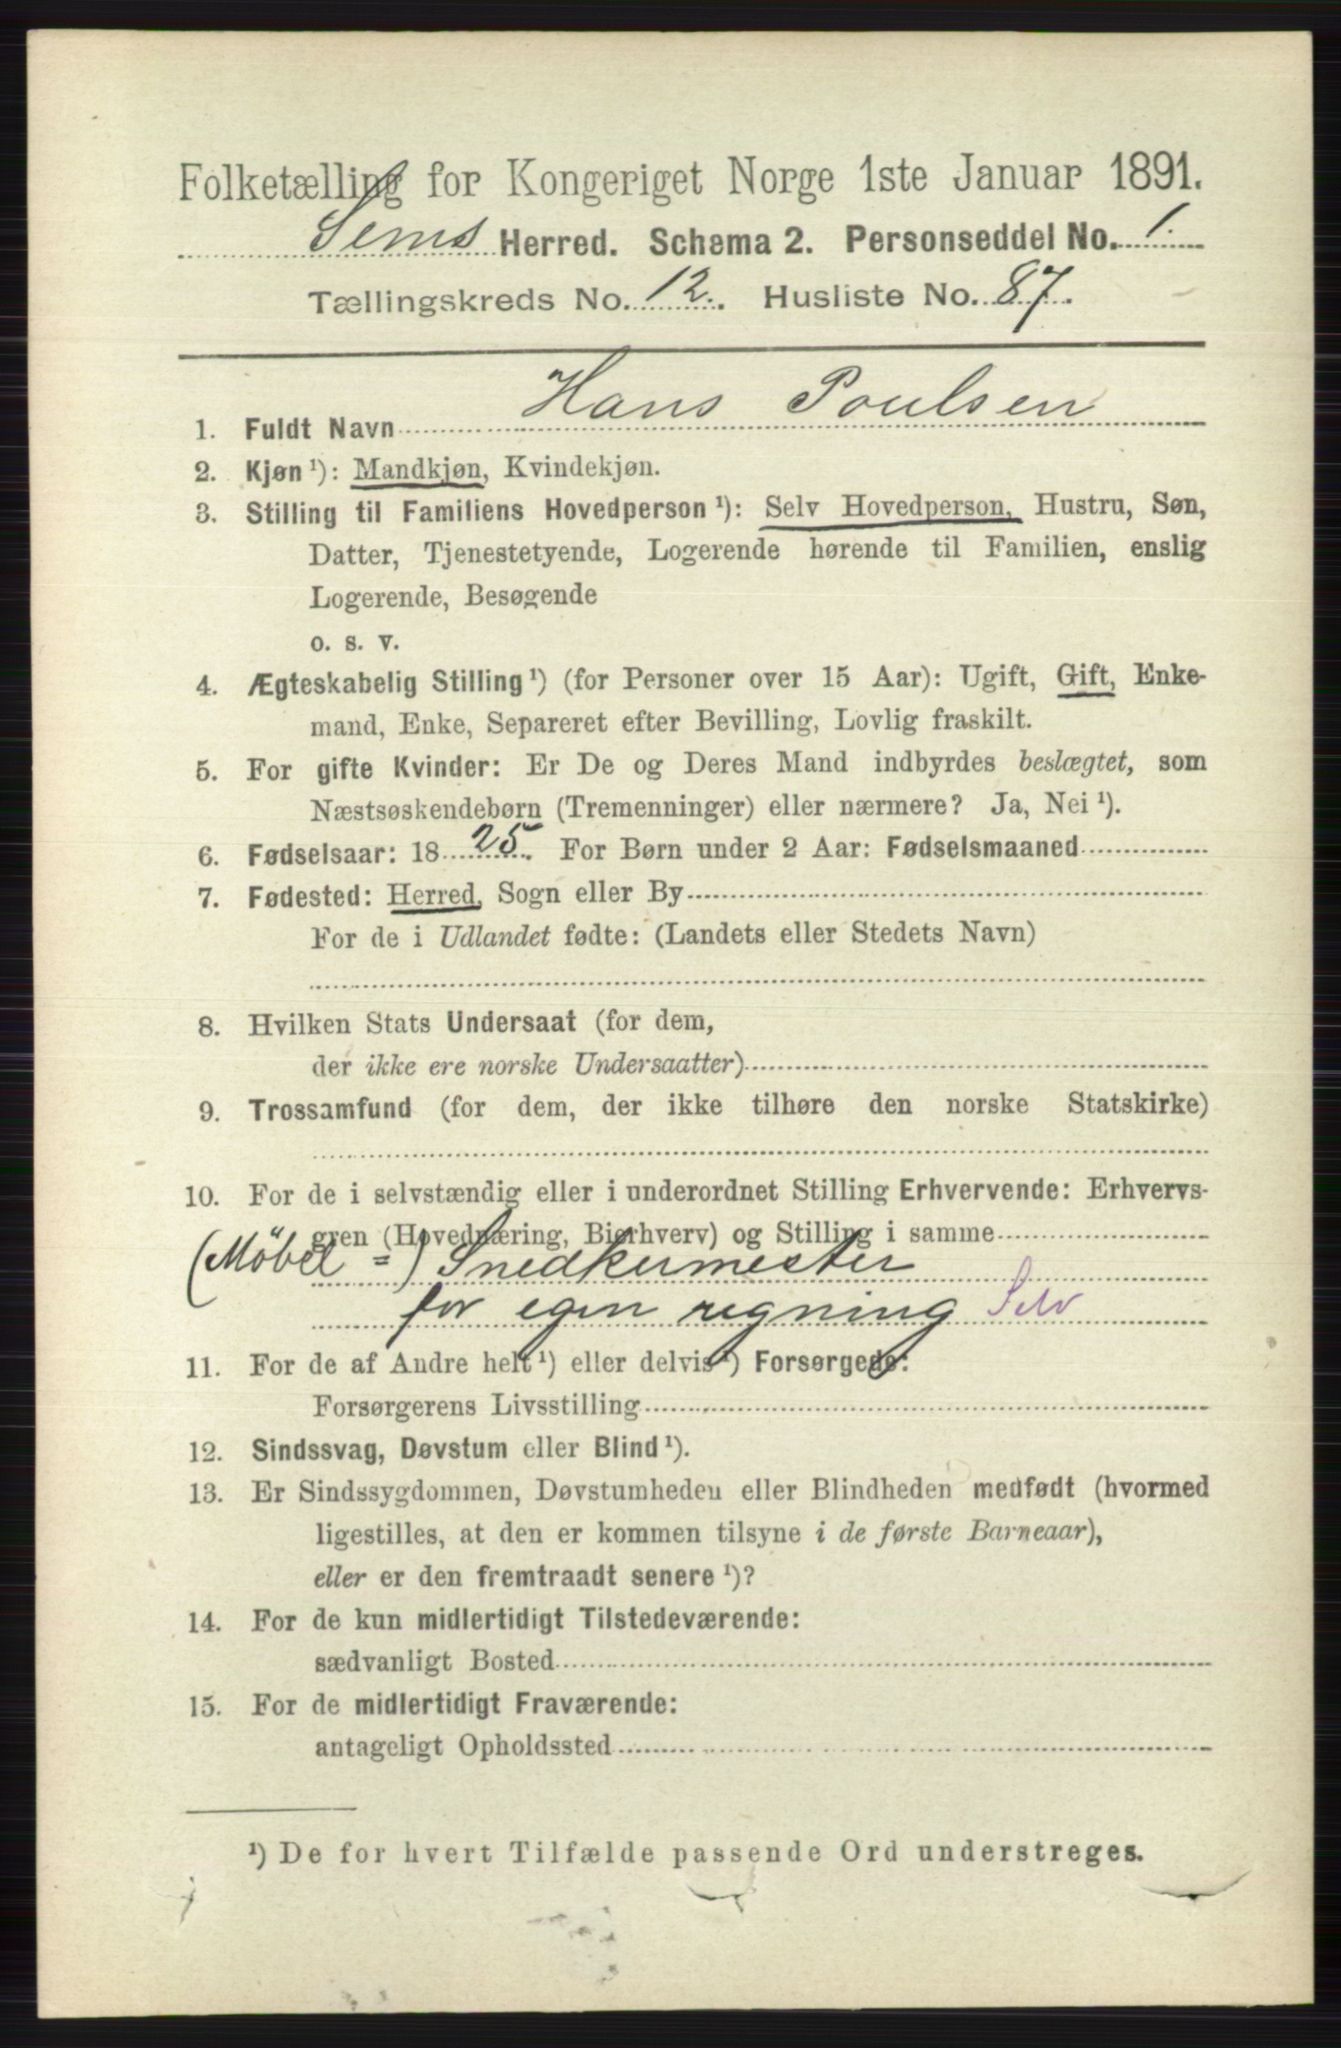 Folketælling for Kongeriget Norge 1ste Januar 1891.
Sems Herred. Schema 2. Personseddel No. 1.
Tællingskreds No. 12. Husliste No. 87.
1. Fuldt Navn Hans Poulsen
2. Kjøn ¹): Mandkjøn, Kvindekjøn.
3. Stilling til Familiens Hovedperson ¹): Selv Hovedperson, Hustru, Søn,
Datter, Tjenestetyende, Logerende hørende til Familien, enslig
Logerende, Besøgende
o. s. v.
4. Ægteskabelig Stilling ¹) (for Personer over 15 Aar): Ugift, Gift, Enke-
mand, Enke, Separeret efter Bevilling, Lovlig fraskilt.
5. For gifte Kvinder: Er De og Deres Mand indbyrdes beslægtet, som
Næstsøskendebørn (Tremenninger) eller nærmere? Ja, Nei ¹).
6. Fødselsaar: 18 25. For Børn under 2 Aar: Fødselsmaaned
7. Fødested: Herred, Sogn eller By
For de i Udlandet fødte: (Landets eller Stedets Navn)
8. Hvilken Stats Undersaat (for dem,
der ikke ere norske Undersaatter)
9. Trossamfund (for dem, der ikke tilhøre den norske Statskirke)
10. For de i selvstændig eller i underordnet Stilling Erhvervende: Erhvervs-
gren (Hovednæring, Bierhverv) og Stilling i samme
(Möbel =) Snedkermester
for egen regning Selv
11. For de af Andre helt ¹) eller delvis ¹) Forsørgede:
Forsørgerens Livsstilling
12. Sindssvag, Døvstum eller Blind ¹).
13. Er Sindssygdommen, Døvstumheden eller Blindheden medfødt (hvormed
ligestilles, at den er kommen tilsyne i de første Barneaar),
eller er den fremtraadt senere ¹)?
14. For de kun midlertidigt Tilstedeværende:
sædvanligt Bosted
15. For de midlertidigt Fraværende:
antageligt Opholdssted
¹) De for hvert Tilfælde passende Ord understreges.